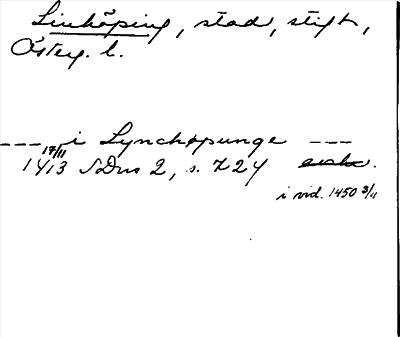 Linköping, stad, stift,
Österg. l.
--- i Lynchøpunge ---
17/11
1413 SDns 2, s. 724
i vid. 1450 3/11